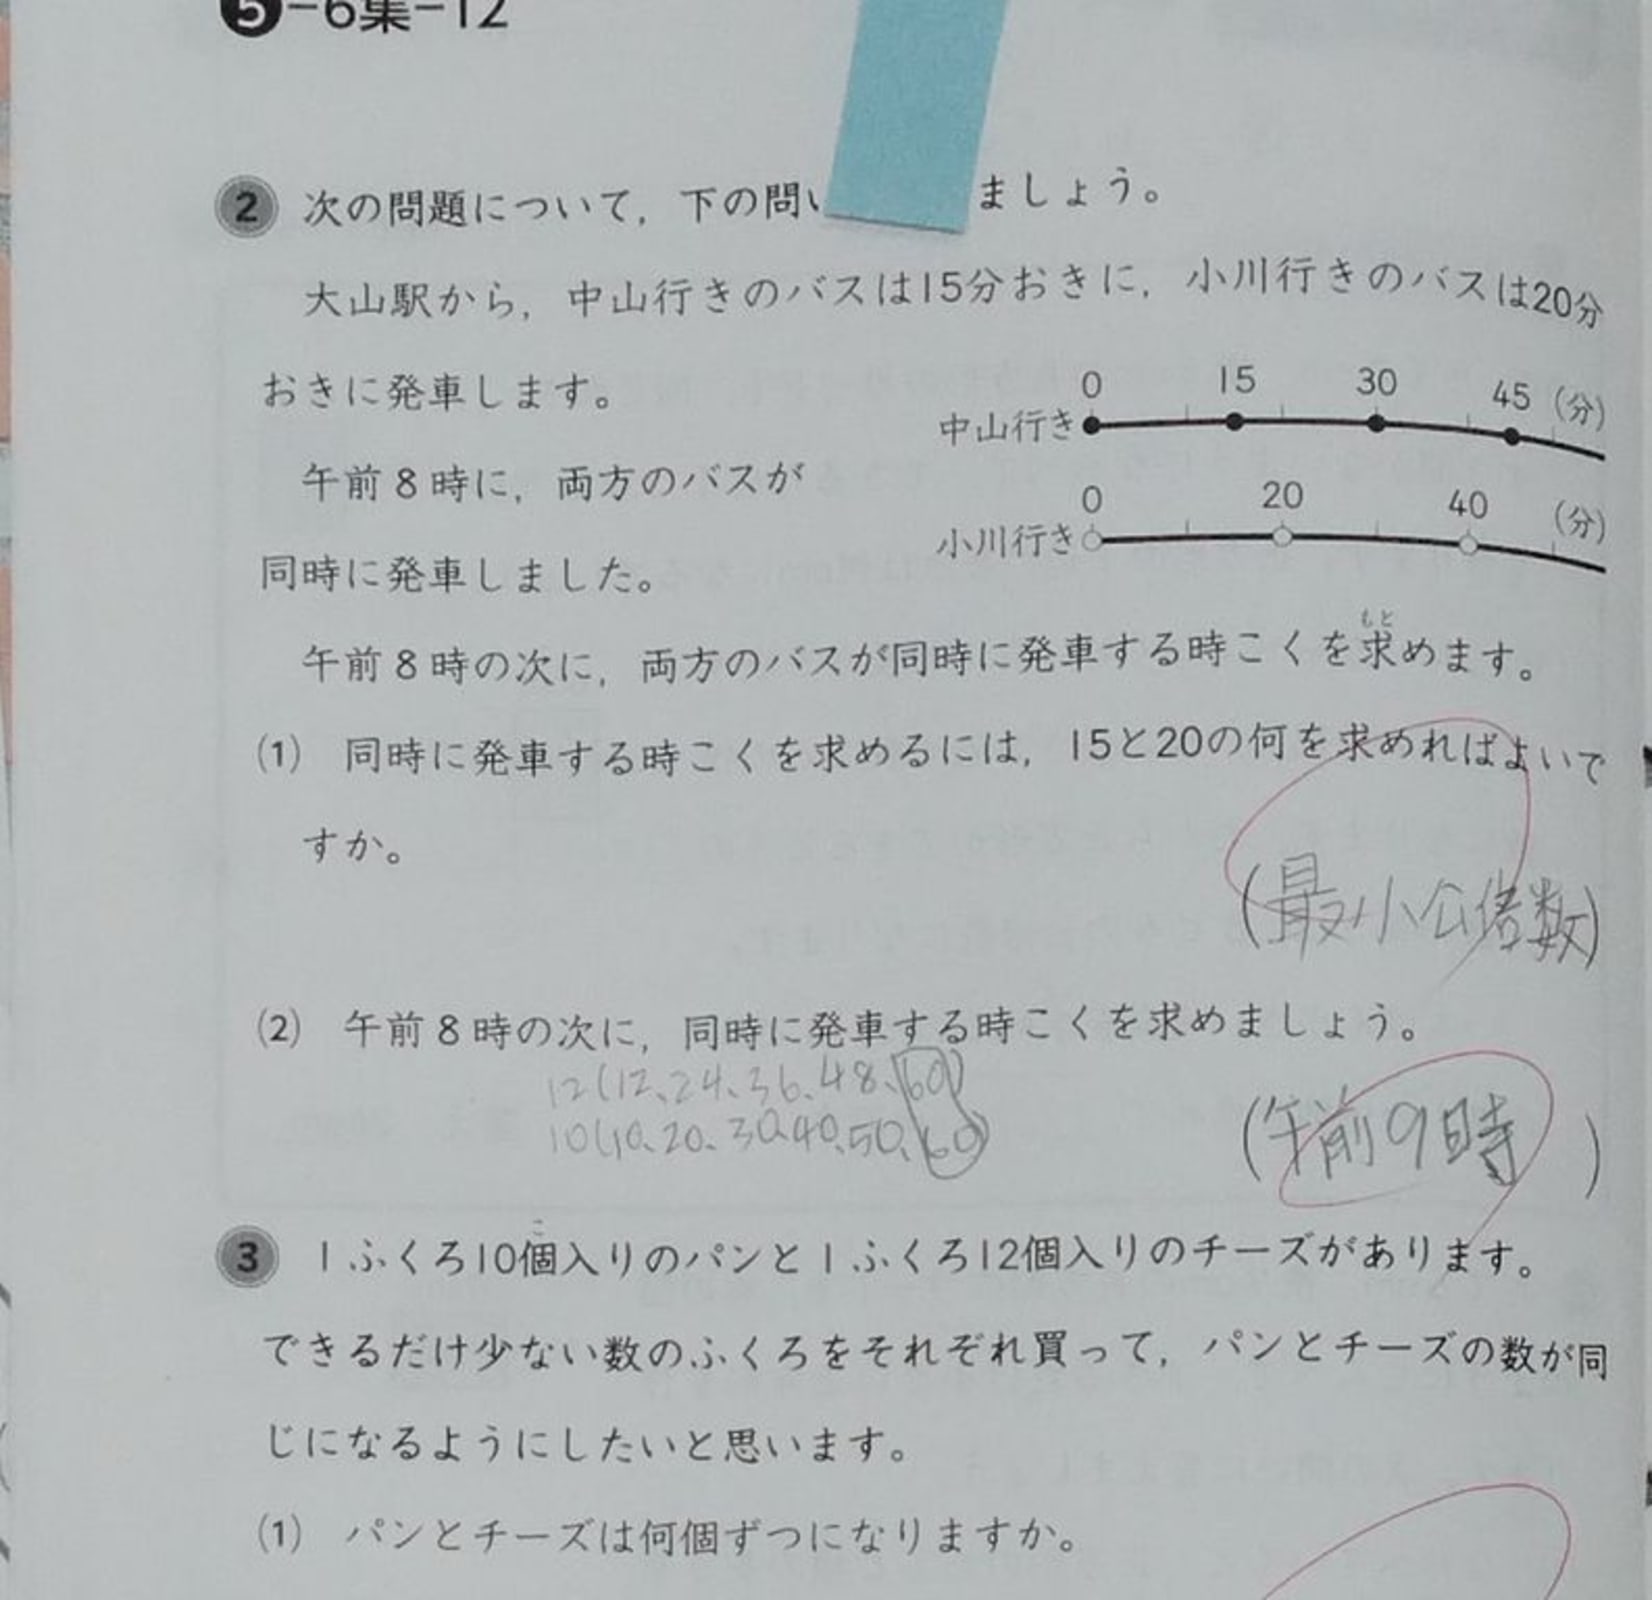 5-6集-12
2 次の問題について，下の問い ましょう。
大山駅から，中山行きのバスは15分おきに，小川行きのバスは20分
おきに発車します。
0 15 30 45 (分)
中山行き
午前8時に，両方のバスが
0 20 40 (分)
小川行き
同時に発車しました。
もと
午前8時の次に，両方のバスが同時に発車する時こくを求めます。
(1) 同時に発車する時こくを求めるには，15と20の何を求めればよいで
すか。
(最小公倍数)
(2) 午前8時の次に，同時に発車する時こくを求めましょう。
12(12、24、36、48、60)
10(10、20、30、40、50、60)
(午前9時)
こ
3 1ふくろ10個入りのパンと1ふくろ12個入りのチーズがあります。
できるだけ少ない数のふくろをそれぞれ買って，パンとチーズの数が同
じになるようにしたいと思います。
(1) パンとチーズは何個ずつになりますか。